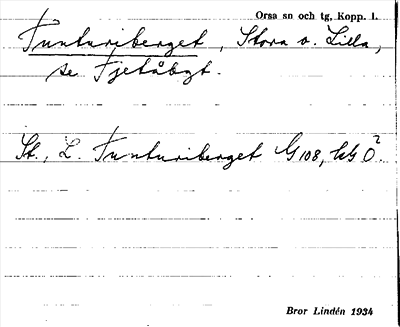 Orsa sn och tg, Kopp. l.
Tunturiberget, Stora o. Lilla,
se Fjetåbgt.
St., L. Tunturiberget G108, hG Ö²
Bror Lindén 1934